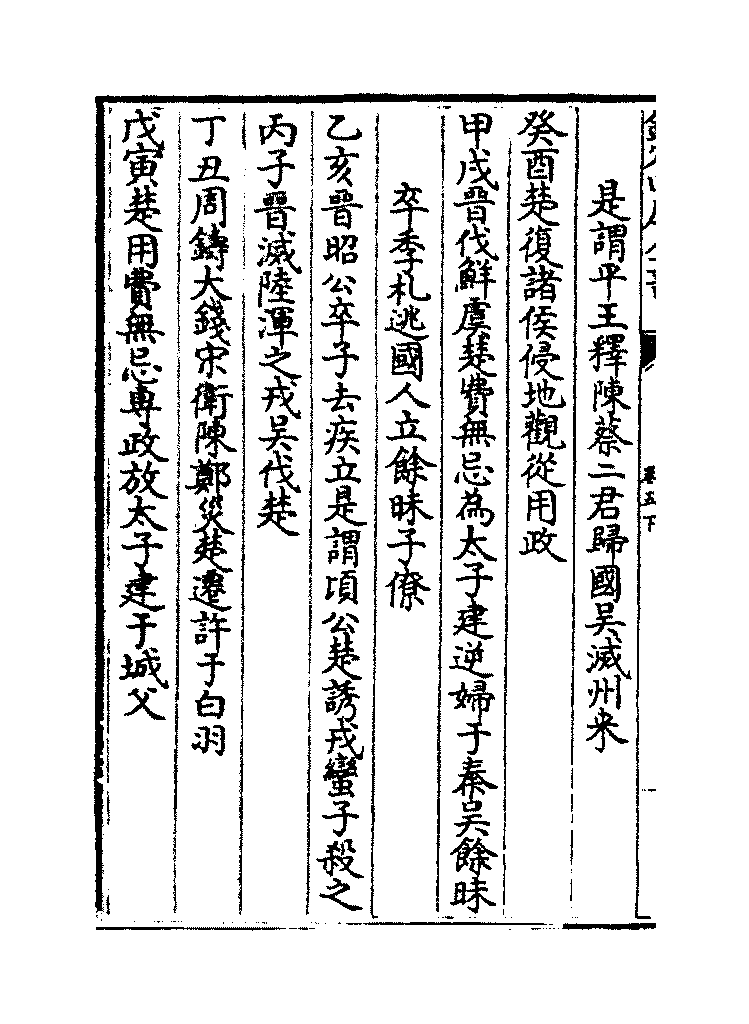 是謂平王釋陳蔡二君歸國吴滅州来
癸酉楚復諸侯侵地觀從用政
甲戌晉伐鮮虞楚費無忌為太子建逆婦于秦吴餘昧
卒季札逃國人立餘昧子僚
乙亥晉昭公卒子去疾立是謂頃公楚誘戎蠻子殺之
丙子晉滅陸渾之戎吴伐楚
丁丑周鑄大錢宋衛陳鄭災楚遷許于白羽
戊寅楚用費無忌専政放太子建于城父